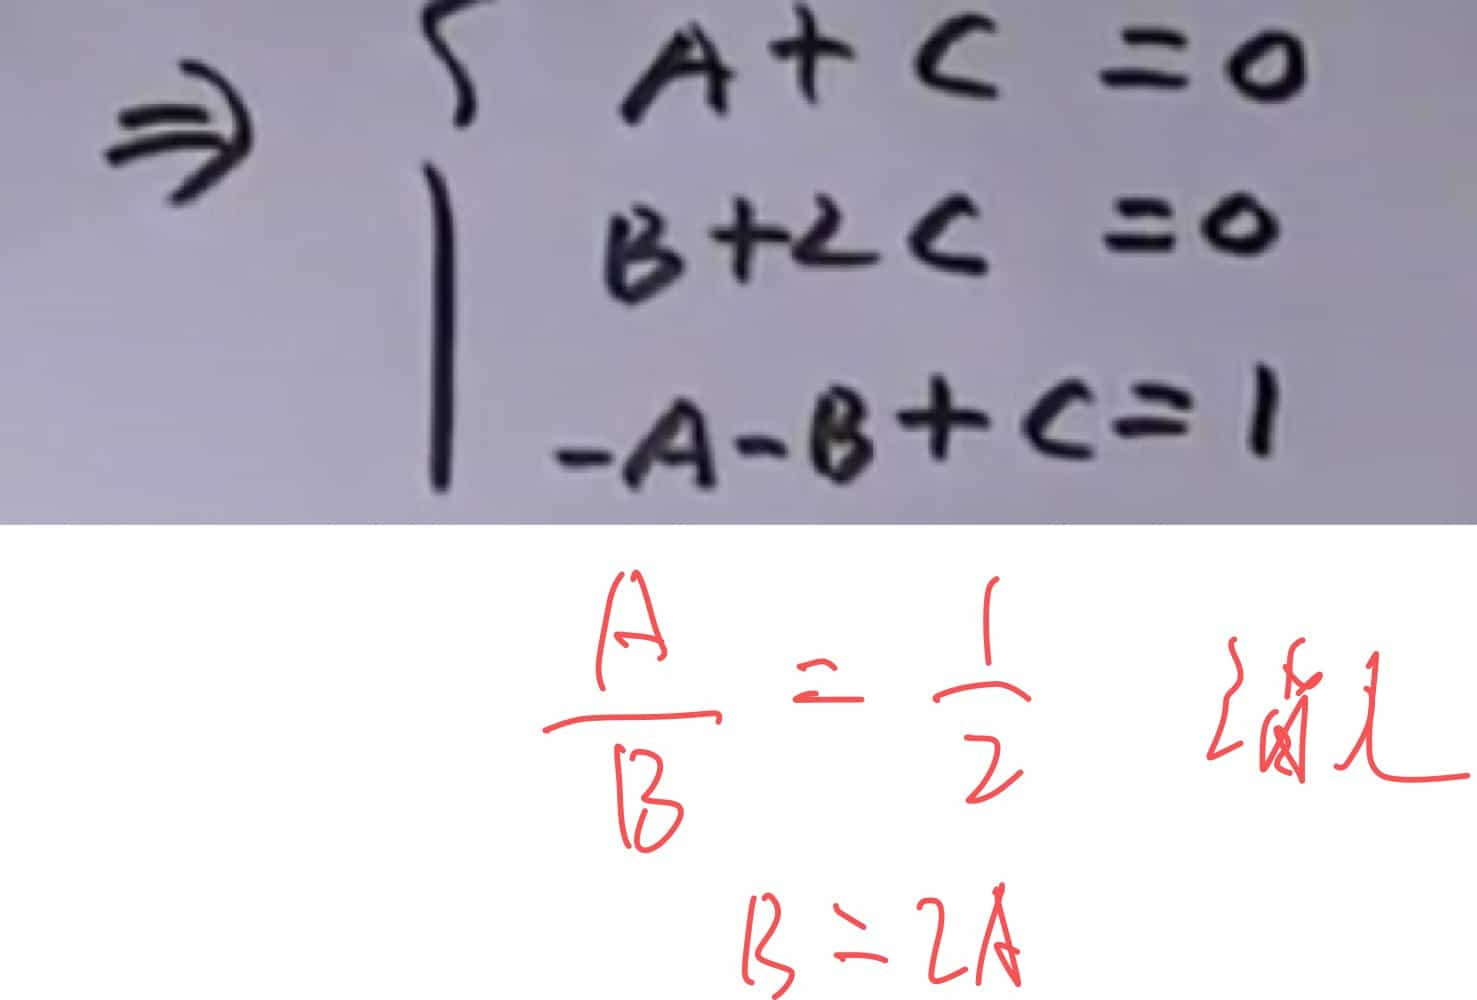 ⇒ { A + C = 0
B + 2C = 0
-A - B + C = 1
A/B = 1/2
B = 2A